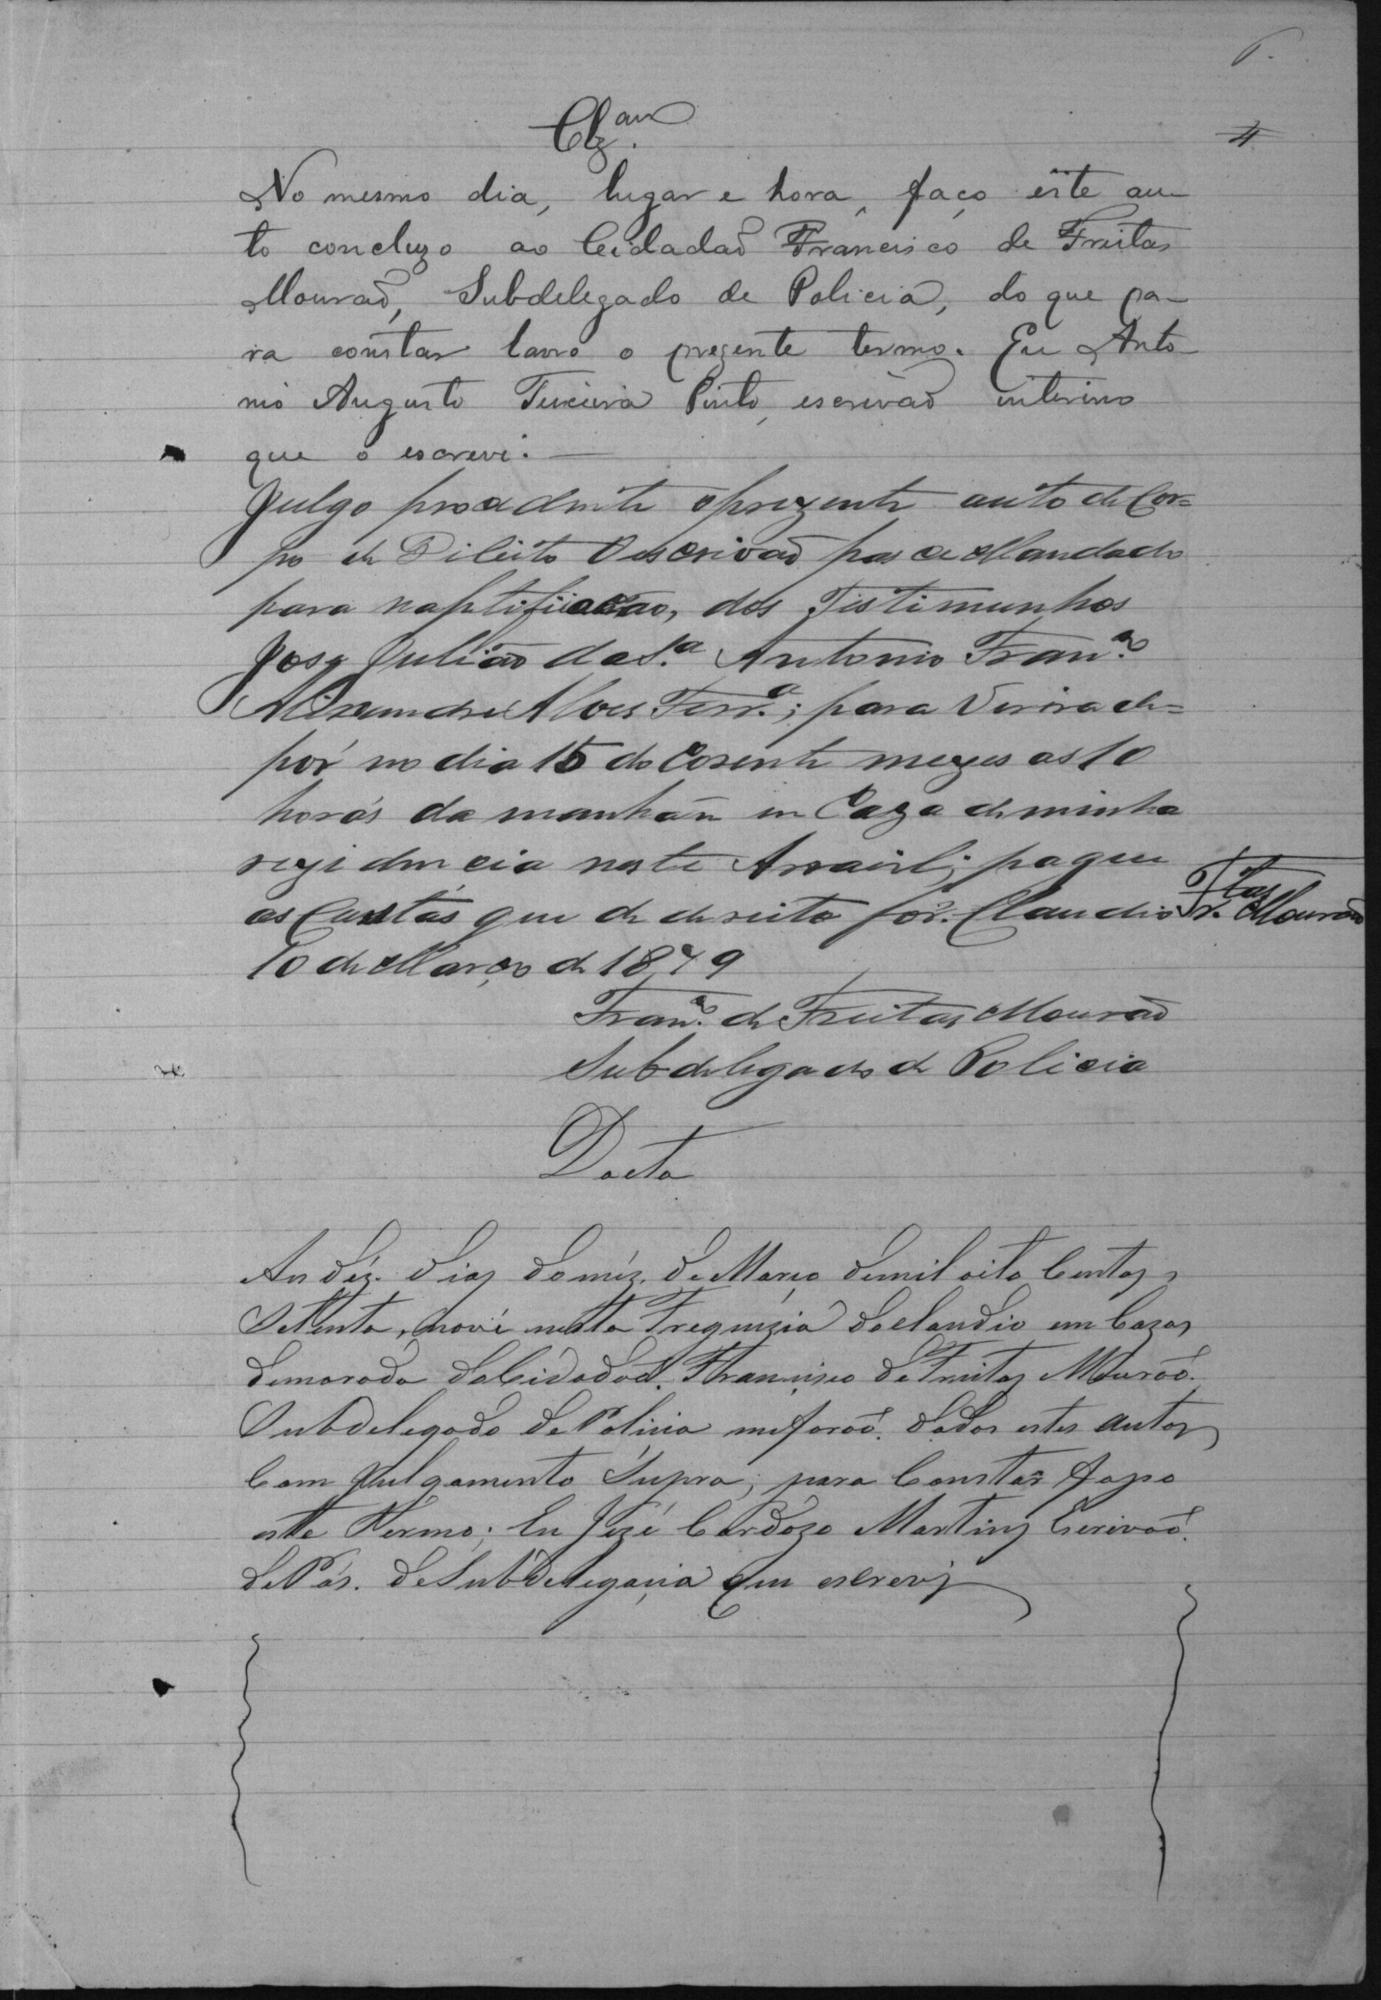 4
Clzam.
No mesmo dia, lugar e hora, faço este au-
to concluzo ao Cidadaõ Francisco de Freitas
Mouraõ, Subdelegado de Policia, do que pa-
ra constar lavro o prezente termo. Eu Anto-
nio Augusto Teixeira Pinto, escrivaõ interino
que o escrevi.
Julgo procedente o prezente auto de Cor=
po de Dilicto O escrivaõ pace Mandado
para naptificacão, dos Tistimunhos
Jose Julião da S.ª Antonio Fran.co
Alixandre Alves Ferr.ª; para Virira de=
pór no dia 15 do Corente mezes as 10
horás da manhãn in Caza de minha
rezidencia neste Arraial; pague
as Custás quem de dereito for. Claudio Fr.tas Mourão
10 de Março de 1879
Fran.co de Freitas Mourão
Subdelegado de Policia
Dacta
Aos déz dias do mêz de Março de mil oito Centos,
Setenta, nove nesta Freguizia do Claudio em Cazas
de morada do Cidadaõ Francisco de Freitas Mouraõ
Subdelegado de Policia me foraõ dados estes autos
Com Julgamento Supra, para Constar faço
este Termo; Eu Jozé Cardozo Martins Escrivaõ
de Páz. de Subdelegacia que escrevi